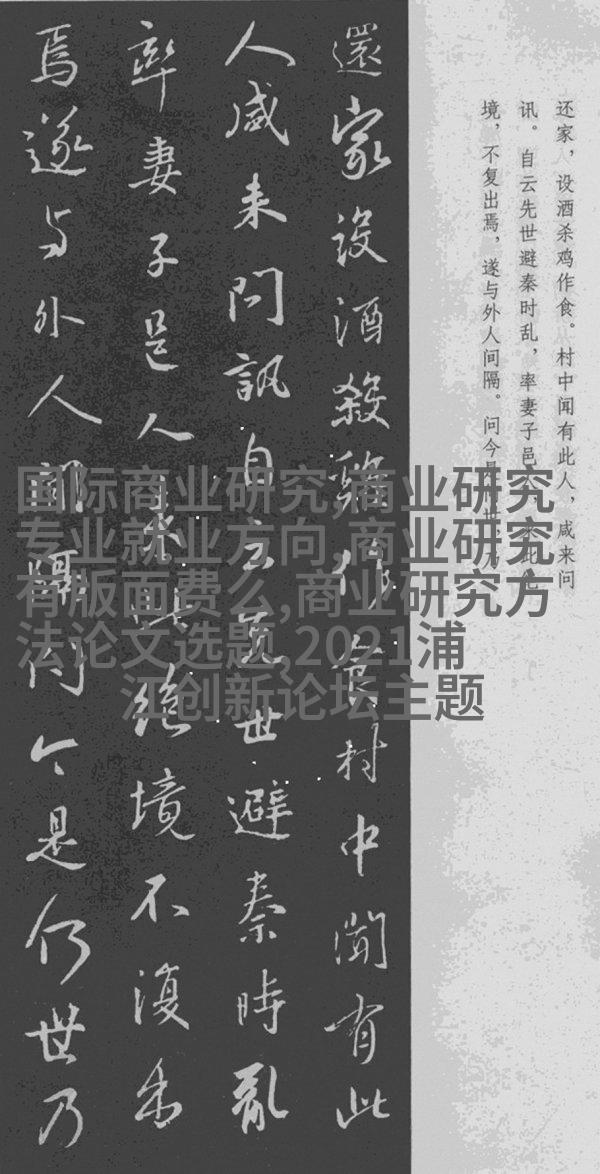 还家，设酒杀鸡作食。村中闻有此人，咸来问
讯。自云先世避秦时乱，率妻子邑
境，不复出焉，遂与外人间隔。问今是何世，乃
還家設酒殺鷄作食村中聞有此
人咸来問訊自云先世避秦時亂
率妻子邑人来此絶境不復出
焉遂与外人間隔问今是何世乃
国际商业研究,商业研究
专业就业方向,商业研究
有版面费么,商业研究方
法论文选题,2021浦
江创新论坛主题